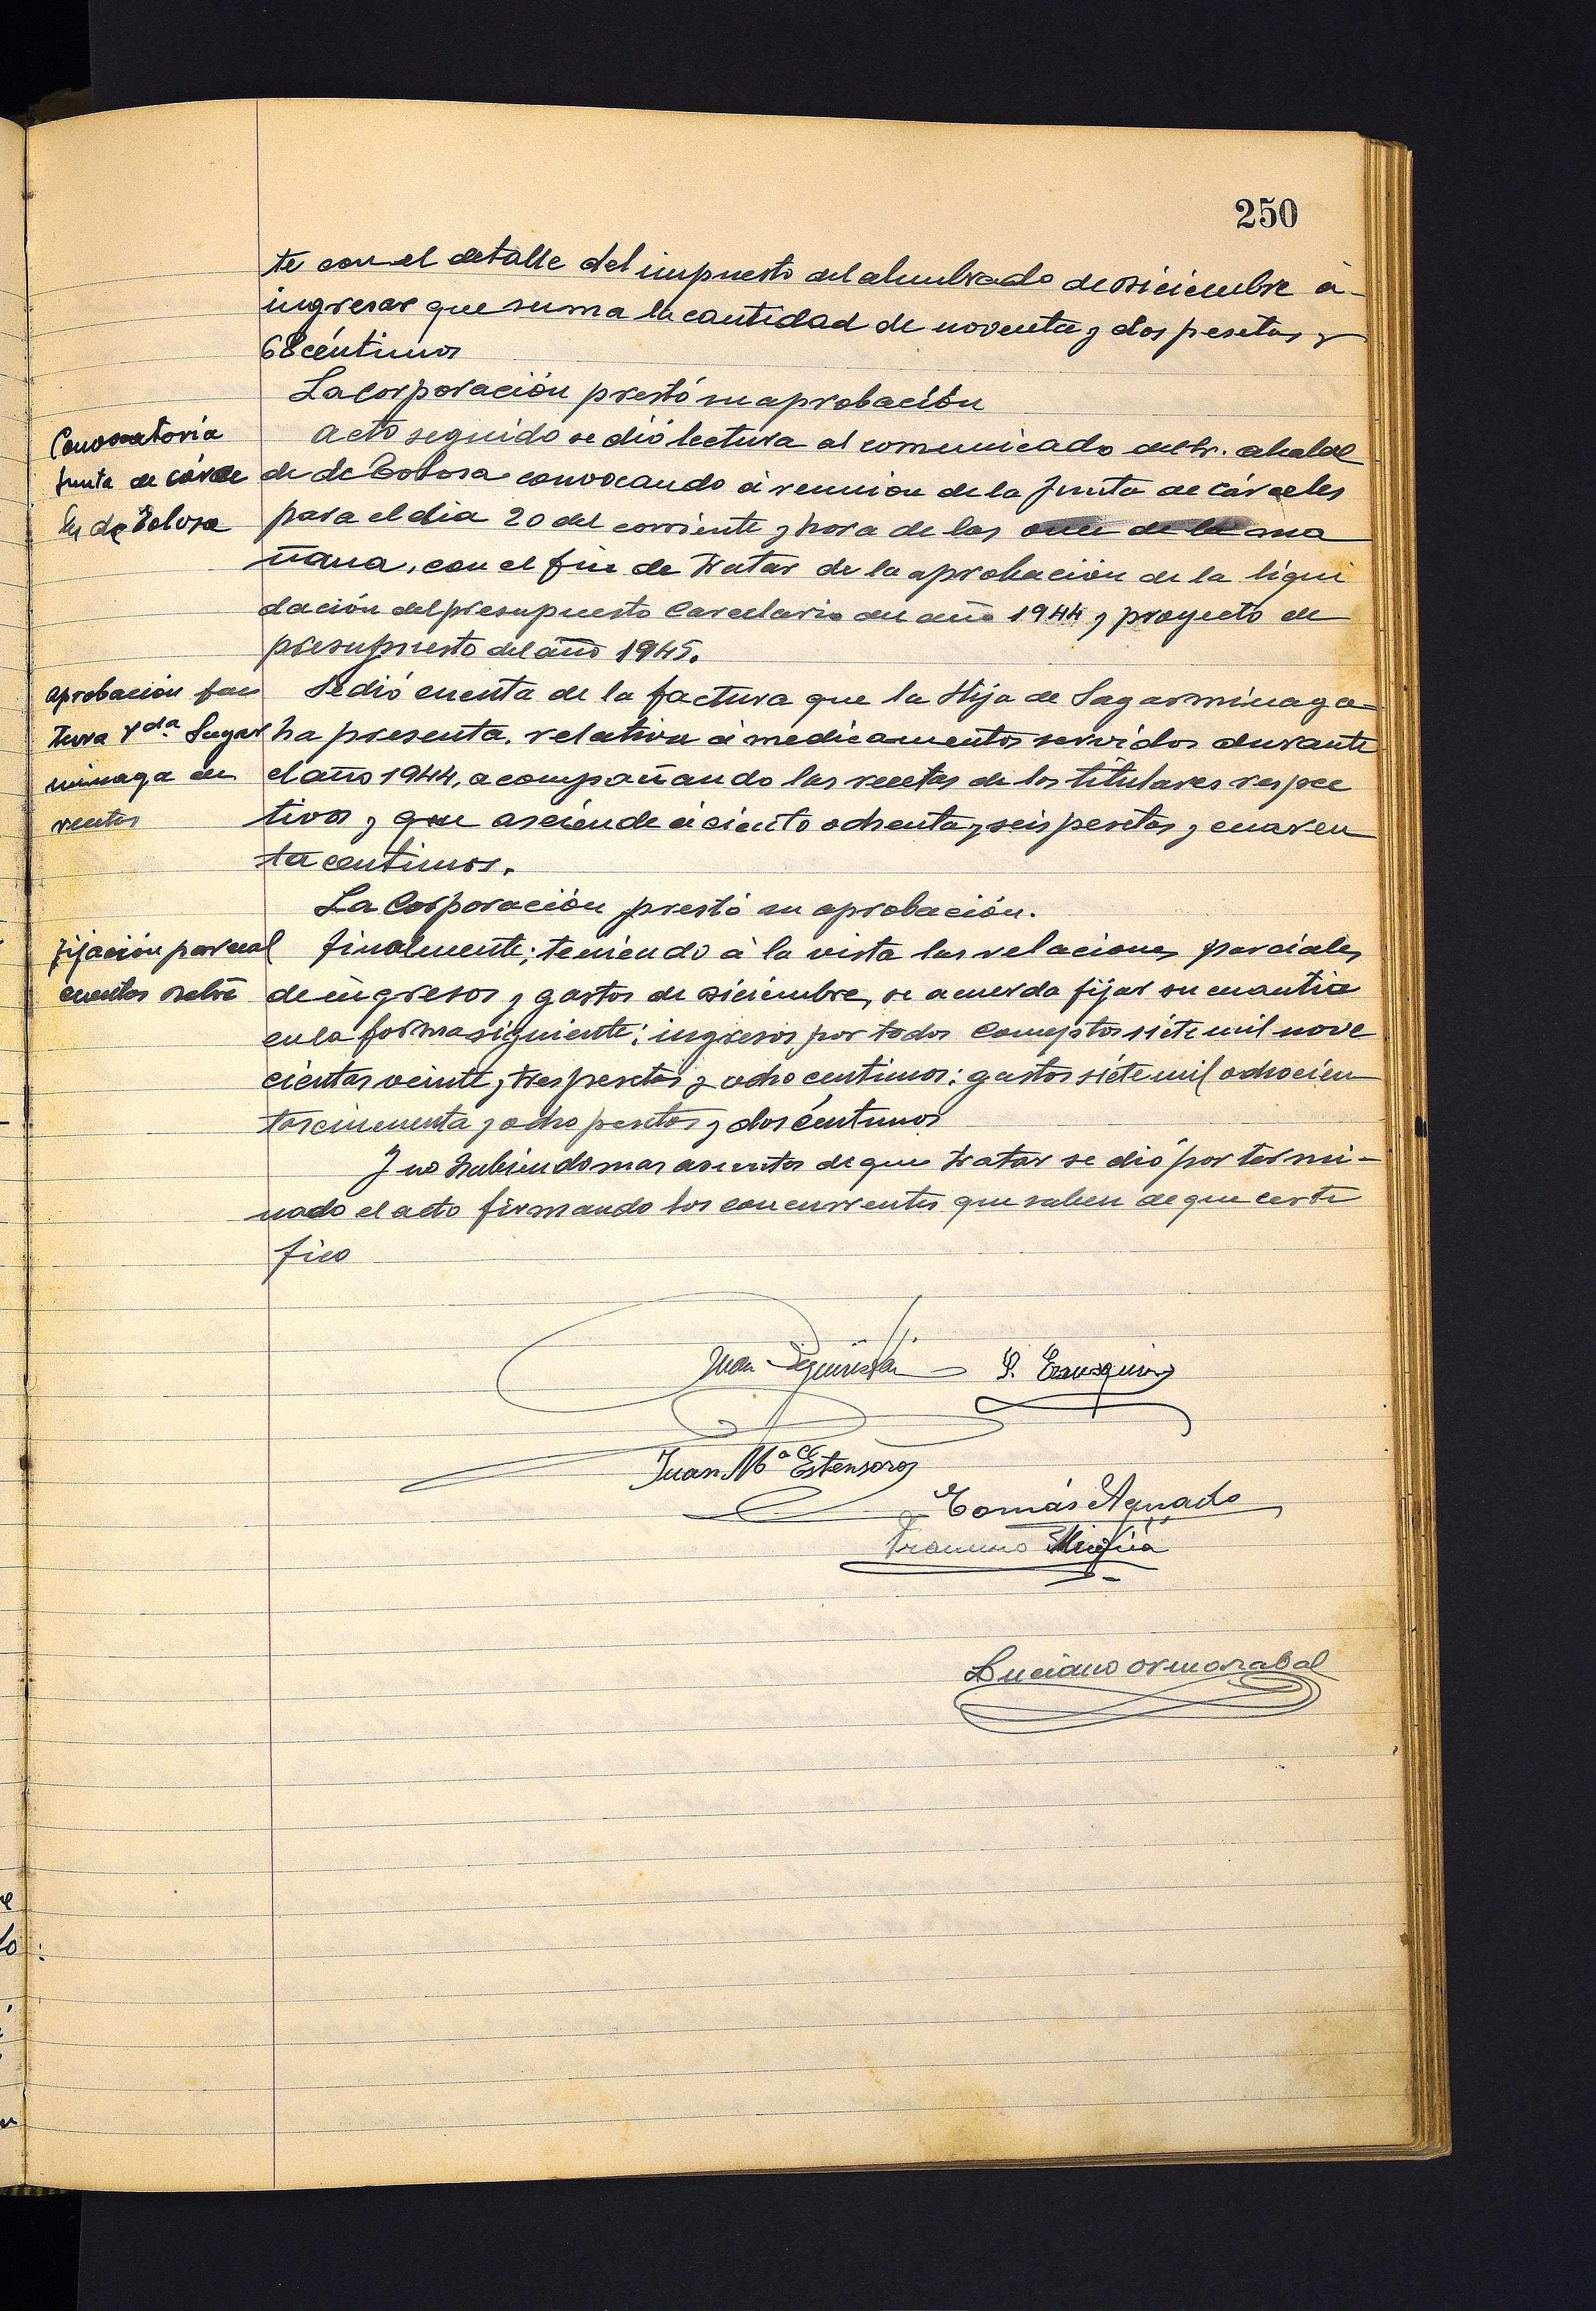 250
te con el detalle del impuesto del alumbrado de Diciembre á
ingresar que suma la cantidad de noventa y dos pesetas y
68 céntimos
La Corporación prestó su aprobación
Convocatoria
Junta de cárce
les de Tolosa
Acto seguido se dió lectura al comunicado del Sr. Alcal
de de Tolosa convocando á reunion de la Junta de Cárceles
para el dia 20 del corriente y hora de las once de la ma
ñana, con el fin de tratar de la aprobación de la liqui
dación del presupuesto Carcelario del año 1944 y proyecto de
presupuesto del año 1945.
aprobación fac
tura Vda. Sagar
minaga
Se dió cuenta de la factura que la Hija de Sagarminaga
ha presenta, relativa á medicamentos servidos durante
el año 1944, acompañando las recetas de los titulares respec
tivos y que asciende á ciento ochenta y seis pesetas y cuaren
ta centimos.
La Corporación prestó su aprobación.
fijación parcial
cuentas
finalmente; teniendo á la vista las relaciones parciales
de ingresos y gastos de Diciembre, se acuerda fijar su cuantia
en la forma siguiente: ingresos por todos conceptos siete mil nove
cientas veinte y tres pesetas y ocho centimos: gastos siete mil ochocien
tas cincuenta y ocho pesetas y dos céntimos
Y no habiendo mas asuntos de que tratar se dió por termi-
nado el acto firmando los concurrentes que saben de que certi
fico
Juan
Juan Mª Estensoro
Tomás Aguado
Francisco Mugica
Luciano Ormazabal